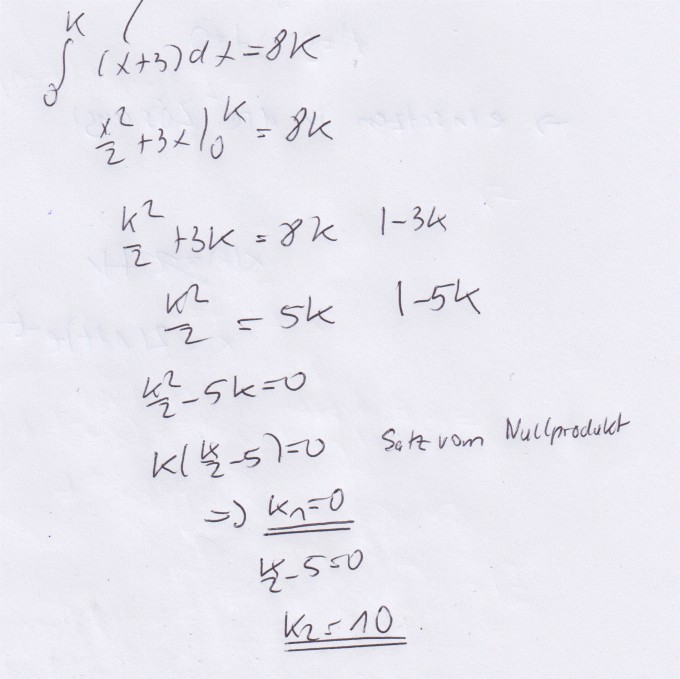 ∫₀ᴷ (x+3)dx = 8K
x²/2 + 3x |₀ᴷ = 8k
k²/2 + 3K = 8k |-3k
k²/2 = 5k |-5k
k²/2 - 5k = 0
K(k/2 - 5) = 0 Satz vom Nullprodukt
=> k₁ = 0
k/2 - 5 = 0
k₂ = 10